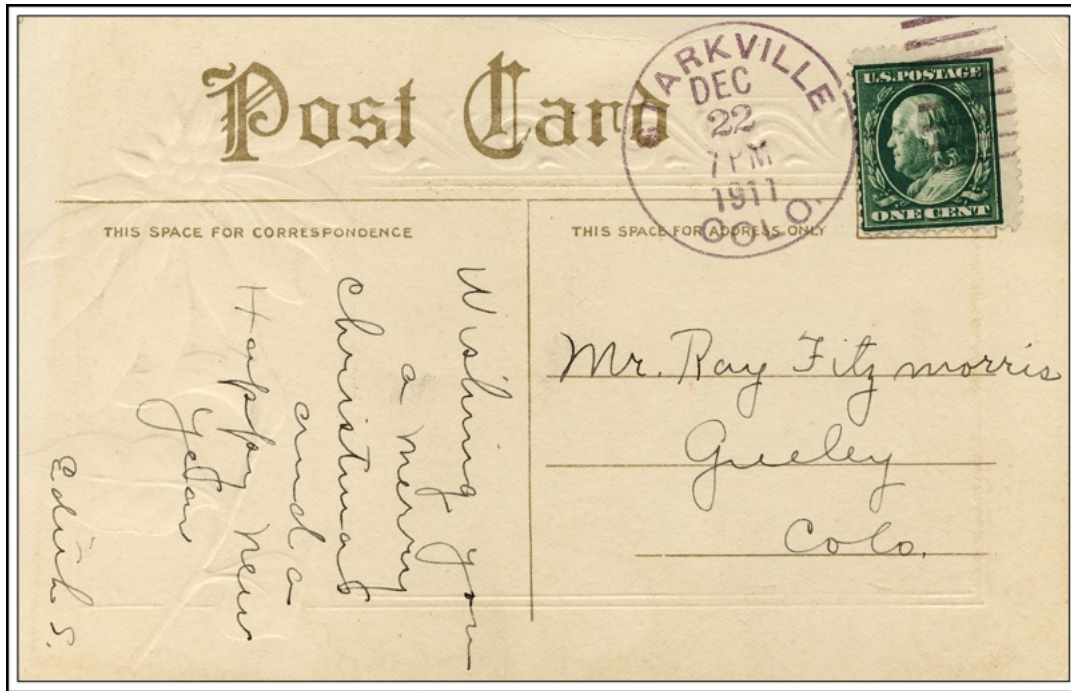 Post Card
DEC
22
7 PM
1911
COLO.
U.S. POSTAGE
ONE CENT
THIS SPACE FOR CORRESPONDENCE
THIS SPACE FOR ADDRESS ONLY
Wishing you
a merry
christmas
and a
Happy New
year
Edith S.
Mr. Ray Fitzmorris
Greeley
Colo.